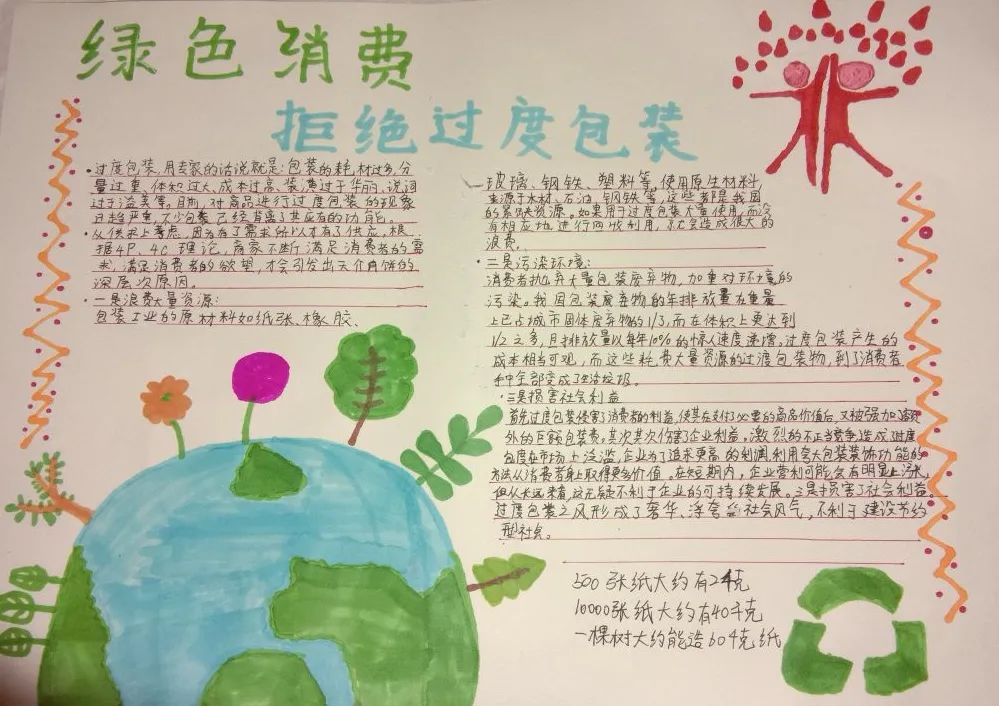 绿色消费
拒绝过度包装
·过度包装,用专家的话说就是:包装的耗材过多,分
量过重,体积过大,成本过高,装潢过于华丽,说词
过于溢美等。目前,对商品进行过度包装的现象
日趋严重,不少包装已经背离了其应有的功能。
·从供求上考虑,因为有了需求所以才有了供应,根
据4P、4C理论,商家不断满足消费者的需
求,满足消费者的欲望,才会引发出天价月饼的
深层次原因。
·一是浪费大量资源:
包装工业的原材料如纸张、橡胶、
玻璃、钢铁、塑料等,使用原生材料
来源于木材、石油、钢铁等,这些都是我国
的紧缺资源。如果用于过度包装大量使用,而没
有相应地进行回收利用,就会造成很大的
浪费。
·二是污染环境:
消费者抛弃大量包装废弃物,加重对环境的
污染。我国包装废弃物的年排放量在重量
上已占城市固体废弃物的1/3,而在体积上更达到
1/2之多,且排放量以每年10%的惊人速度递增。过度包装产生的
成本相当可观,而这些耗费大量资源的过渡包装物,到了消费者
手中全部变成了生活垃圾。
·三是损害社会利益
首先过度包装侵害了消费者的利益,使其在支付了必要的商品价值后,又被强加了额
外的巨额包装费。其次其次伤害企业利益。激烈的不正当竞争造成过度
包度在市场上泛滥,企业为了追求更高的利润利用夸大包装装饰功能的
方法从消费者身上取得更多价值。在短期内,企业营利可能会有明显上升,
但从长远来看,这无疑不利于企业的可持续发展。三是损害了社会利益。
过度包装之风形成了奢华、浮夸的社会风气,不利于建设节约
型社会。
500张纸大约有2千克
10000张纸大约有40千克
一棵树大约能造60千克纸